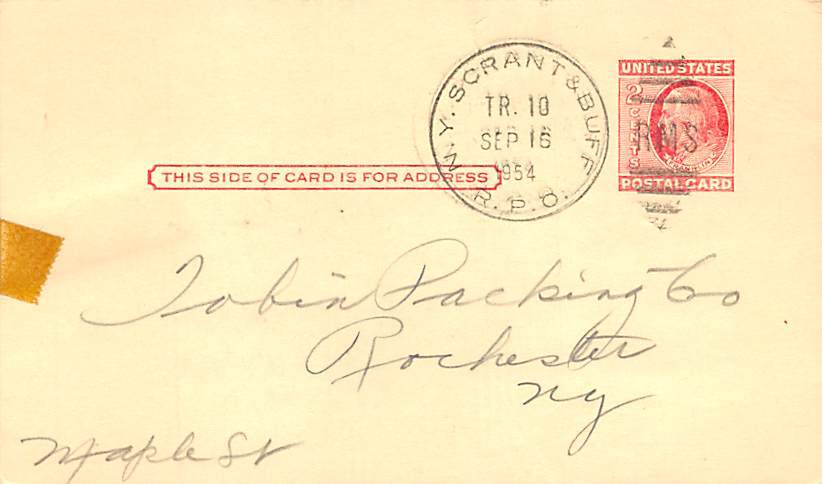 N.Y. SCRANT & BUFF
TR. 10
SEP 16
1954
R.P.O.
UNITED STATES
2 CENTS
RMS
FRANKLIN
POSTAL CARD
THIS SIDE OF CARD IS FOR ADDRESS
Tobin Packing Co
Rochester
NY
Maple St